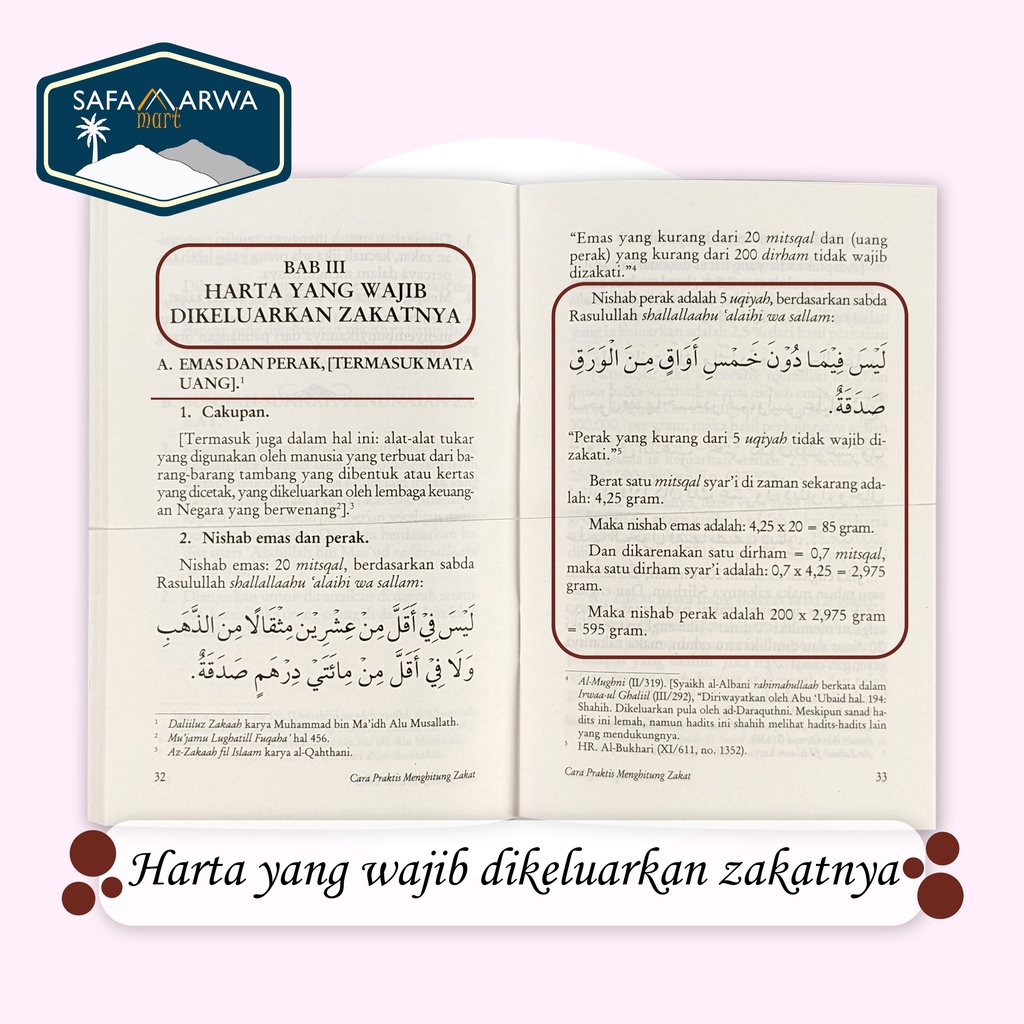 SAFA MARWA
mart
BAB III
HARTA YANG WAJIB
DIKELUARKAN ZAKATNYA
A. EMAS DAN PERAK, [TERMASUK MATA
UANG].¹
1. Cakupan.
[Termasuk juga dalam hal ini: alat-alat tukar
yang digunakan oleh manusia yang terbuat dari ba-
rang-barang tambang yang dibentuk atau kertas
yang dicetak, yang dikeluarkan oleh lembaga keuang-
an Negara yang berwenang²].³
2. Nishab emas dan perak.
Nishab emas: 20 mitsqal, berdasarkan sabda
Rasulullah shallallaahu ‘alaihi wa sallam:
لَيْسَ فِيْ أَقَلَّ مِنْ عِشْرِيْنَ مِثْقَالًا مِنَ الذَّهَبِ
وَلَا فِيْ أَقَلَّ مِنْ مِائَتَيْ دِرْهَمٍ صَدَقَةٌ.
¹ Daliiluz Zakaah karya Muhammad bin Ma’idh Alu Musallath.
² Mu’jamu Lughatill Fuqaha’ hal 456.
³ Az-Zakaah fil Islaam karya al-Qahthani.
32 Cara Praktis Menghitung Zakat
“Emas yang kurang dari 20 mitsqal dan (uang
perak) yang kurang dari 200 dirham tidak wajib
dizakati.”⁴
Nishab perak adalah 5 uqiyah, berdasarkan sabda
Rasulullah shallallaahu ‘alaihi wa sallam:
لَيْسَ فِيْمَا دُوْنَ خَمْسِ أَوَاقٍ مِنَ الْوَرَقِ
صَدَقَةٌ.
“Perak yang kurang dari 5 uqiyah tidak wajib di-
zakati.”⁵
Berat satu mitsqal syar’i di zaman sekarang ada-
lah: 4,25 gram.
Maka nishab emas adalah: 4,25 x 20 = 85 gram.
Dan dikarenakan satu dirham = 0,7 mitsqal,
maka satu dirham syar’i adalah: 0,7 x 4,25 = 2,975
gram.
Maka nishab perak adalah 200 x 2,975 gram
= 595 gram.
⁴ Al-Mughni (II/319). [Syaikh al-Albani rahimahullaah berkata dalam
Irwaa-ul Ghaliil (III/292), “Diriwayatkan oleh Abu ‘Ubaid hal. 194:
Shahih. Dikeluarkan pula oleh ad-Daraquthni. Meskipun sanad ha-
dits ini lemah, namun hadits ini shahih melihat hadits-hadits lain
yang mendukungnya.
⁵ HR. Al-Bukhari (XI/611, no. 1352).
Cara Praktis Menghitung Zakat 33
Harta yang wajib dikeluarkan zakatnya